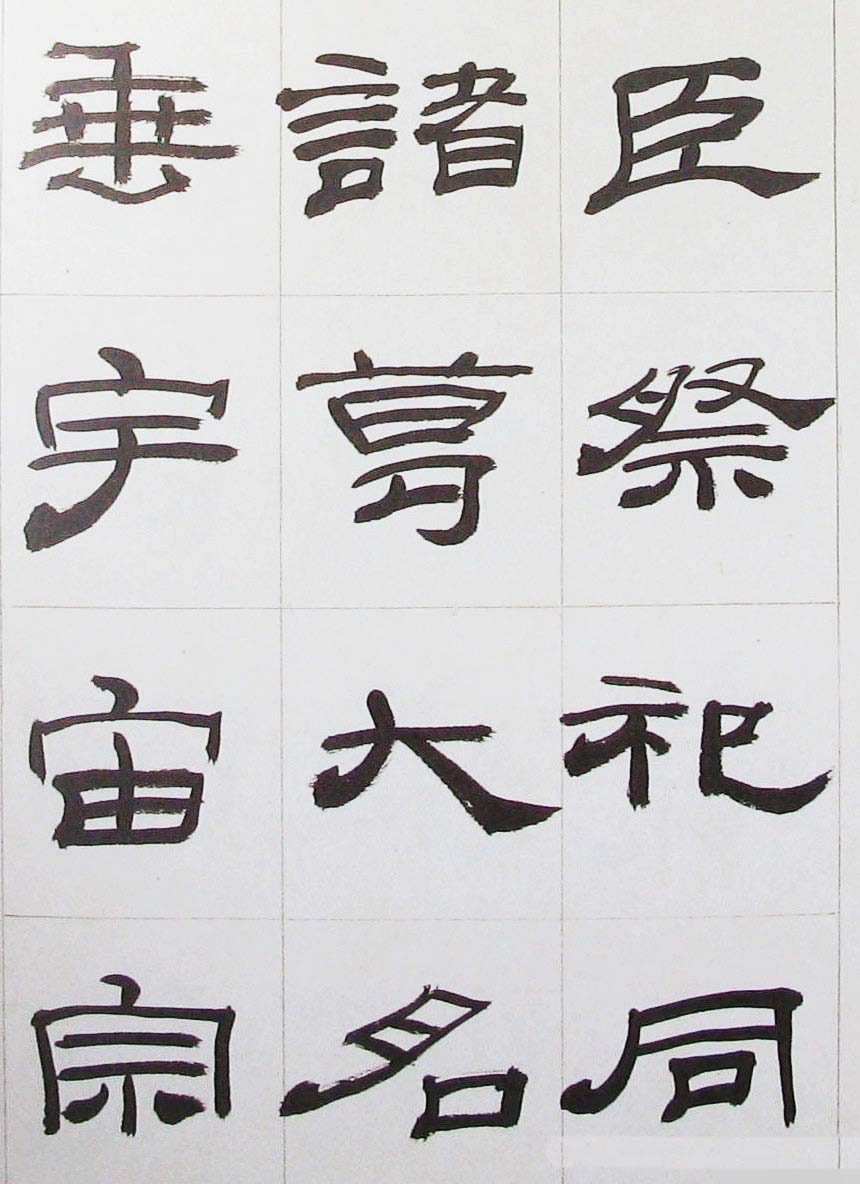 臣祭祀同
諸葛大名
垂宇宙宗